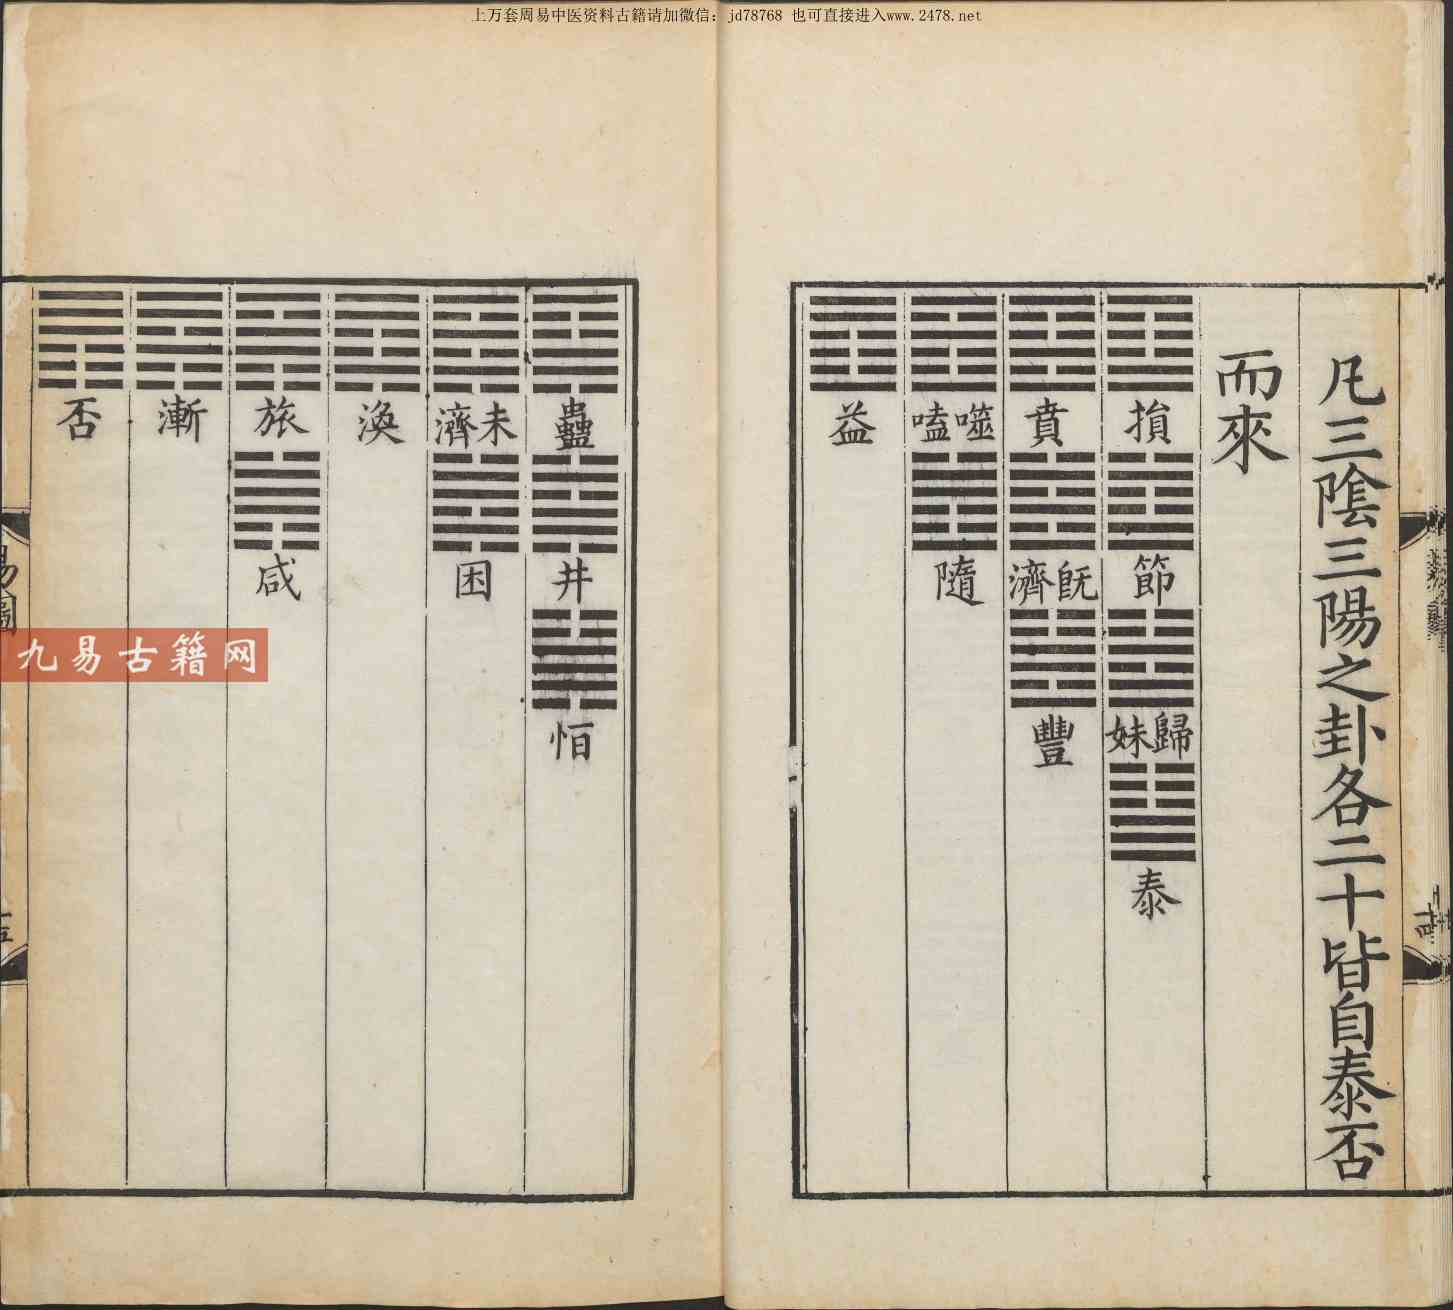 上万套周易中医资料古籍请加微信: jd78768 也可直接进入www.2478.net
凡三陰三陽之卦各二十皆自泰否
而來
損 節 歸妹 泰
賁 旣濟 豐
噬嗑 隨
益
蠱 井 恒
未濟 困
渙
旅 咸
漸
否
九易古籍网